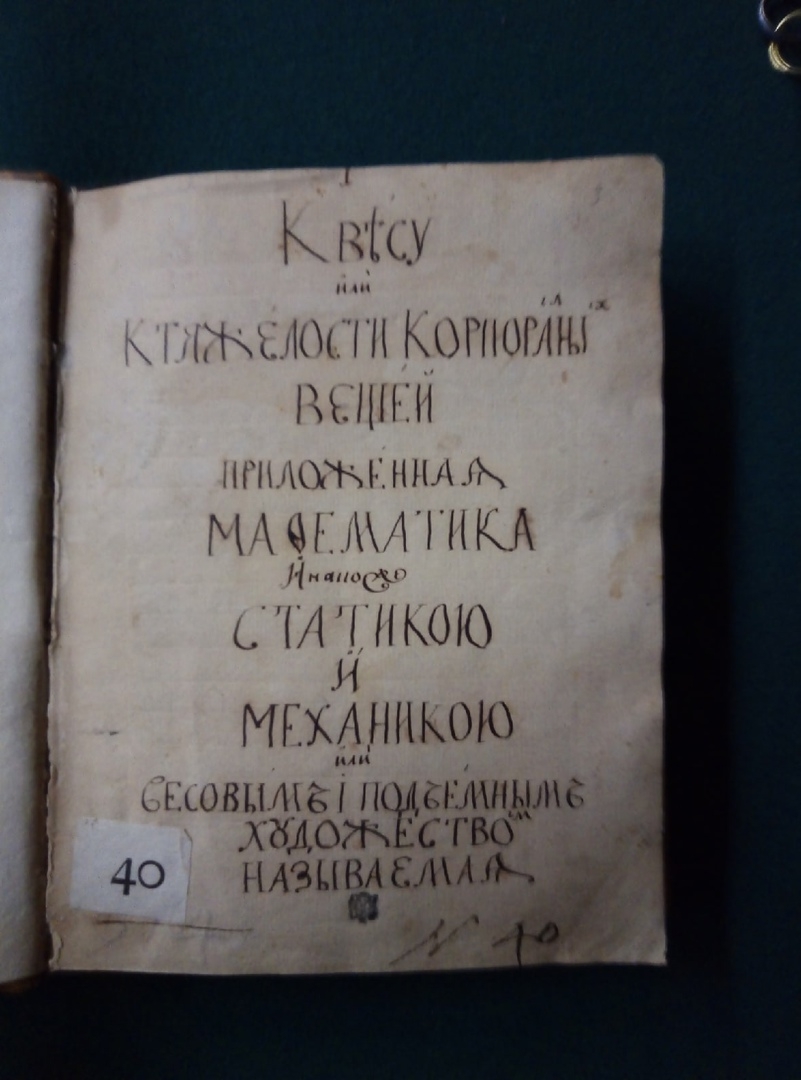 К вѣсу
или
К ТЯЖЕЛОСТИ КОРПОРАЛНЫХ
ВЕЩЕЙ
ПРИЛОЖЕННАЯ
МАѲЕМАТИКА
СТАТИКОЮ
Й
МЕХАНИКОЮ
или
ВЕСОВЫМЪ І ПОДЪЕМНЫМЪ
ХУДОЖЕСТВОМ
НАЗЫВАЕМАЯ
40
N 40